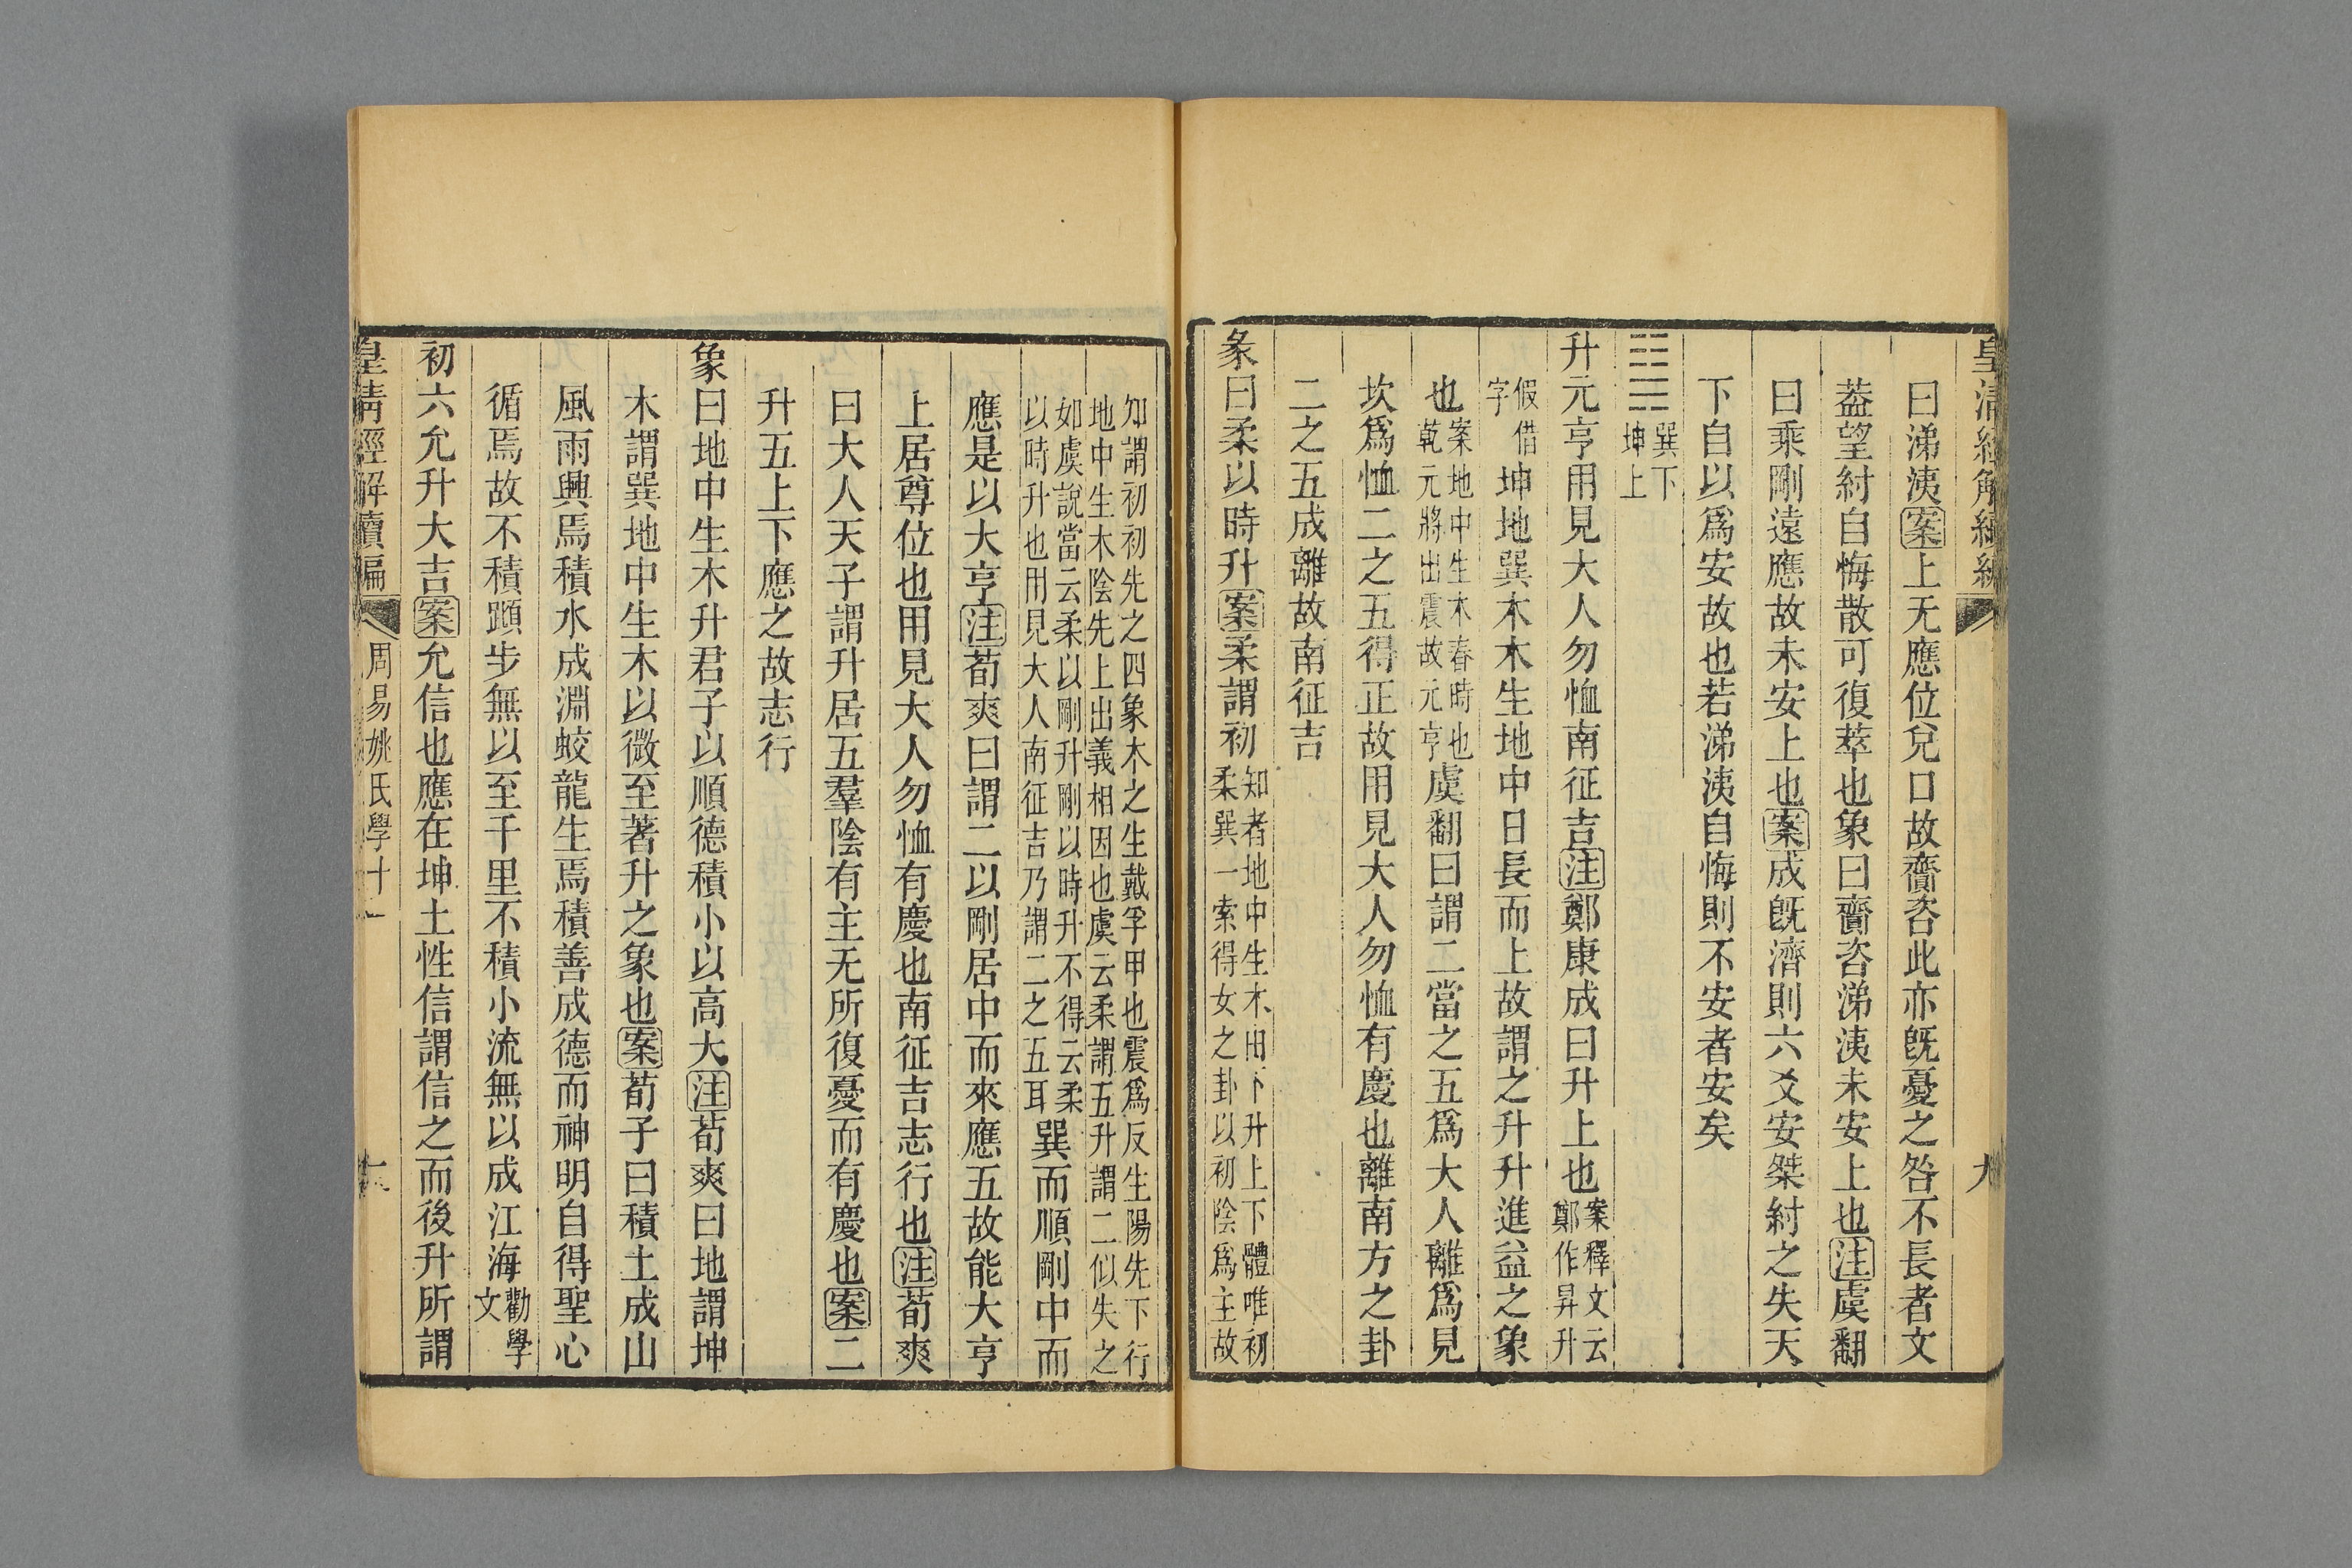 皇清經解續編
九
曰涕洟案上无應位兌口故齎咨此亦旣憂之咎不長者文
葢望紂自悔散可復萃也象曰齎咨涕洟未安上也注虞翻
曰乘剛遠應故未安上也案成旣濟則六爻安桀紂之失天
下自以爲安故也若涕洟自悔則不安者安矣
䷭巽下坤上
升元亨用見大人勿恤南征吉注鄭康成曰升上也案釋文云鄭作昇升
假借字坤地巽木木生地中日長而上故謂之升升進益之象
也案地中生木春時也乾元將出震故元亨虞翻曰謂二當之五爲大人離爲見
坎爲恤二之五得正故用見大人勿恤有慶也離南方之卦
二之五成離故南征吉
彖曰柔以時升案柔謂初知者地中生木由下升上下體唯初柔巽一索得女之卦以初陰爲主故
知謂初初先之四象木之生戴孚甲也震爲反生陽先下行
地中生木陰先上出義相因也虞云柔謂五升謂二似失之
如虞說當云柔以剛升剛以時升不得云柔
以時升也用見大人南征吉乃謂二之五耳巽而順剛中而
應是以大亨注荀爽曰謂二以剛居中而來應五故能大亨
上居尊位也用見大人勿恤有慶也南征吉志行也注荀爽
曰大人天子謂升居五羣陰有主无所復憂而有慶也案二
升五上下應之故志行
象曰地中生木升君子以順德積小以高大注荀爽曰地謂坤
木謂巽地中生木以微至著升之象也案荀子曰積土成山
風雨興焉積水成淵蛟龍生焉積善成德而神明自得聖心
循焉故不積蹞步無以至千里不積小流無以成江海勸學文
初六允升大吉案允信也應在坤土性信謂信之而後升所謂
皇清經解續編
周易姚氏學十一